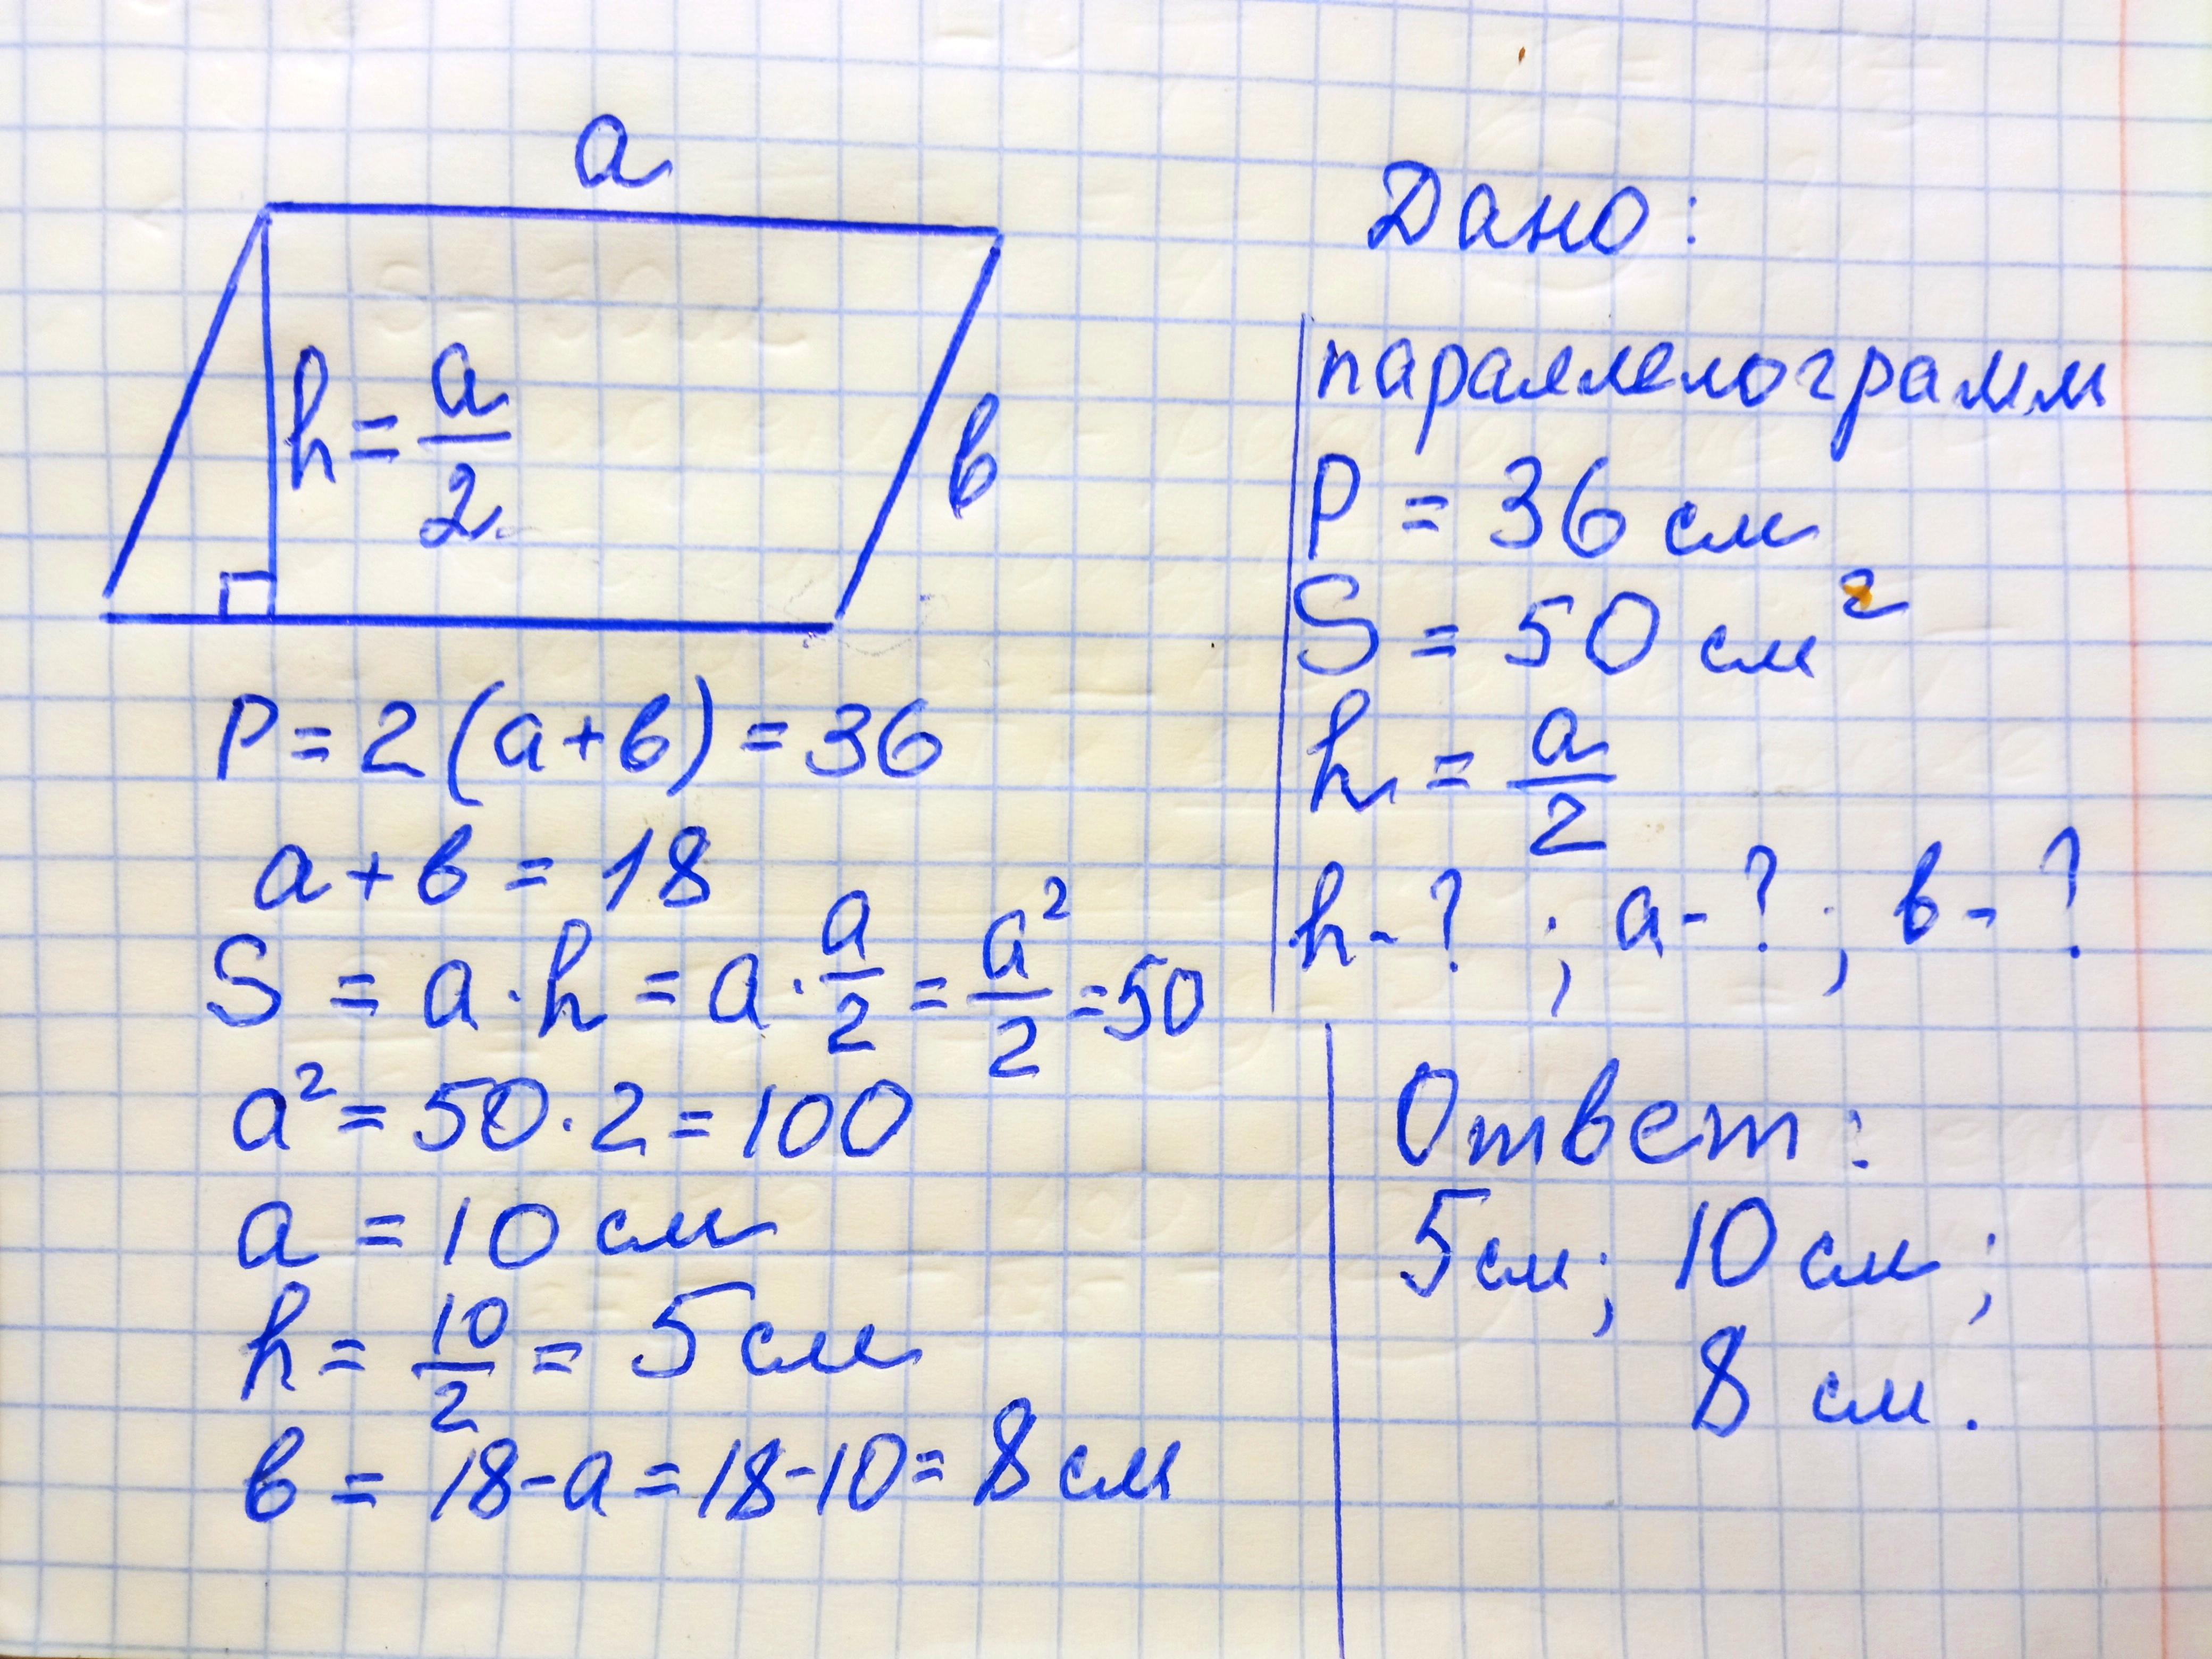 a
h = a/2
в
P = 2(a+в) = 36
a + в = 18
S = a · h = a · a/2 = a²/2 = 50
a² = 50 · 2 = 100
a = 10 см
h = 10/2 = 5 см
в = 18 - a = 18 - 10 = 8 см
Дано:
параллелограмм
P = 36 см
S = 50 см²
h = a/2
h - ? ; a - ? ; в - ?
Ответ:
5 см; 10 см;
8 см.